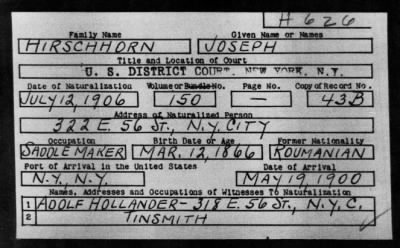 H 626
Family Name Given Name or Names
HIRSCHHORN JOSEPH
Title and Location of Court
U. S. DISTRICT COURT, NEW YORK, N.Y.
Date of Naturalization Volume or Bundle No. Page No. Copy of Record No.
JULY 12, 1906 150 — 43B
Address of Naturalized Person
322 E. 56 ST., N.Y. CITY
Occupation Birth Date or Age Former Nationality
SADDLE MAKER MAR. 12, 1866 ROUMANIAN
Port of Arrival in the United States Date of Arrival
N.Y., N.Y. MAY 19, 1900
Names, Addresses and Occupations of Witnesses To Naturalization
1 ADOLF HOLLANDER - 318 E. 56 ST., N.Y.C.
2 TINSMITH